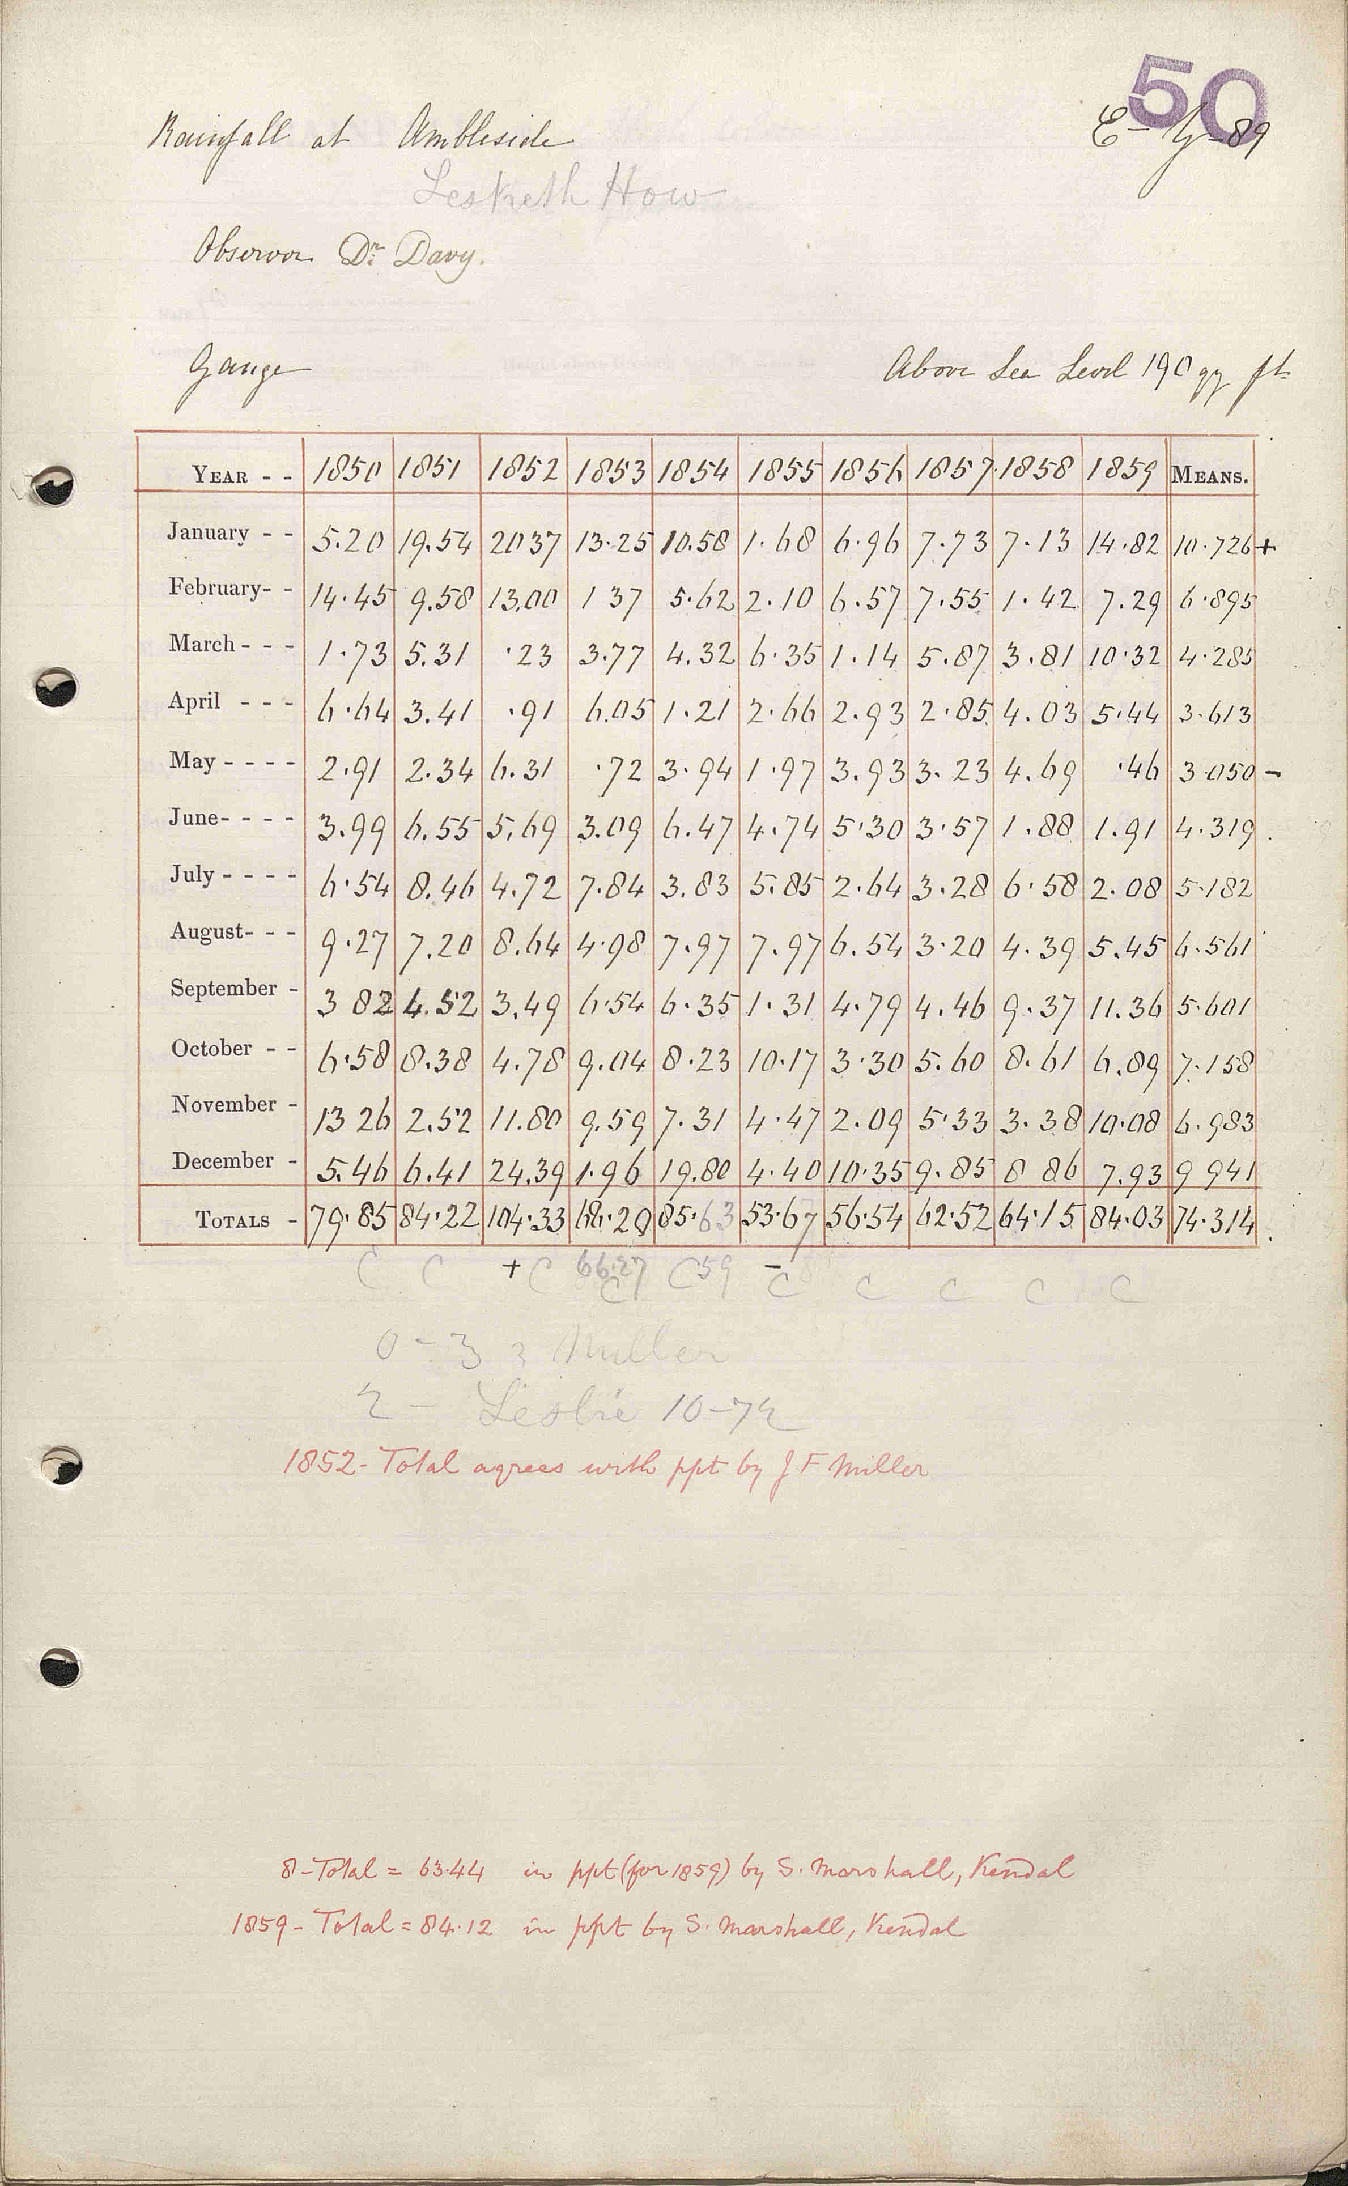 50
Rainfall at Ambleside
Lesketh How
Observor Dr. Davy.
Gauge Above Sea Level 190 ft
YEAR - - 1850 1851 1852 1853 1854 1855 1856 1857 1858 1859 MEANS.
January - - 5.20 19.54 20 37 13.25 10.58 1.68 6.96 7.73 7.13 14.82 10.726 +
February- - 14.45 9.58 13.00 1 37 5.62 2.10 6.57 7.55 1.42 7.29 6.895
March - - - 1.73 5.31 .23 3.77 4.32 6.35 1.14 5.87 3.81 10.32 4.285
April - - - 6.64 3.41 .91 6.05 1.21 2.66 2.93 2.85 4.03 5.44 3.613
May - - - - 2.91 2.34 6.31 .72 3.94 1.97 3.93 3.23 4.69 .46 3 050 -
June- - - - 3.99 6.55 5.69 3.09 6.47 4.74 5.30 3.57 1.88 1.91 4.319
July - - - - 6.54 8.46 4.72 7.84 3.83 5.85 2.64 3.28 6.58 2.08 5.182
August- - - 9.27 7.20 8.64 4.98 7.97 7.97 6.54 3.20 4.39 5.45 6.561
September - 3 82 4.52 3.49 6.54 6.35 1.31 4.79 4.46 9.37 11.36 5.601
October - - 6.58 8.38 4.78 9.04 8.23 10.17 3.30 5.60 8.61 6.89 7.158
November - 13 26 2.52 11.80 9.59 7.31 4.47 2.09 5.33 3.38 10.08 6.983
December - 5.46 6.41 24.39 1.96 19.80 4.40 10.35 9.85 8 86 7.93 9 941
TOTALS - 79.85 84.22 104.33 68.20 85.63 53.67 56.54 62.52 64.15 84.03 74.314
C C + C 66.27 C C 59 - C C C C C
0 - 3 Miller
2 - Leslie 10-72
1852 - Total agrees with ppt by J F Miller
8 - Total = 63.44 in ppt (for 1859) by S. Marshall, Kendal
1859 - Total = 84.12 in ppt by S. Marshall, Kendal